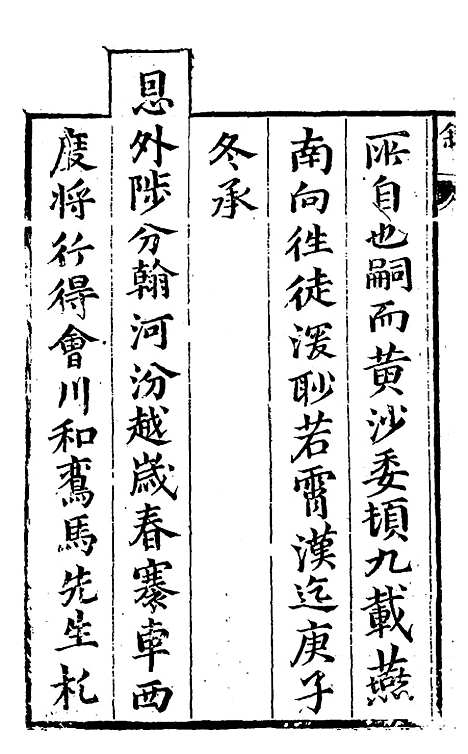 所自也嗣而黄沙委頓九載燕
南向徃徒湲眇若霄漢迄庚子
冬承
恩外陟分翰河汾越歲春褰車西
度将行得會川和鸞馬先生札